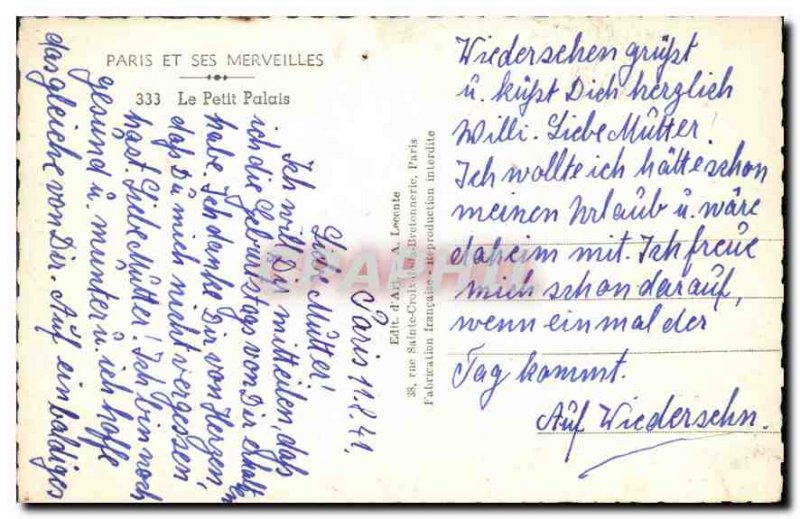 PARIS ET SES MERVEILLES
333 Le Petit Palais
Paris 11.2.41,
Liebe Mutter!
Ich will Dir mitteilen, das
ich die Geburtstag von Dir erhalten
habe. Ich danke Dir von Herzen,
das Du mich nicht vergessen
hast. Liebe Mutter! Ich bin noch
gesund u. munter u. ich hoffe
das gleiche von Dir. Auf ein baldiges
Wiedersehen grüßt
u. küßt Dich herzlich
Willi. Liebe Mutter!
Ich wollte ich hätte schon
meinen Urlaub u. wäre
daheim mit. Ich freue
mich schon darauf,
wenn einmal der
Tag kommt.
Auf Wiedersehn.
Edit. d'Art - A. Leconte
38, rue Sainte-Croix-de-la-Bretonnerie, Paris
Fabrication française - Reproduction interdite